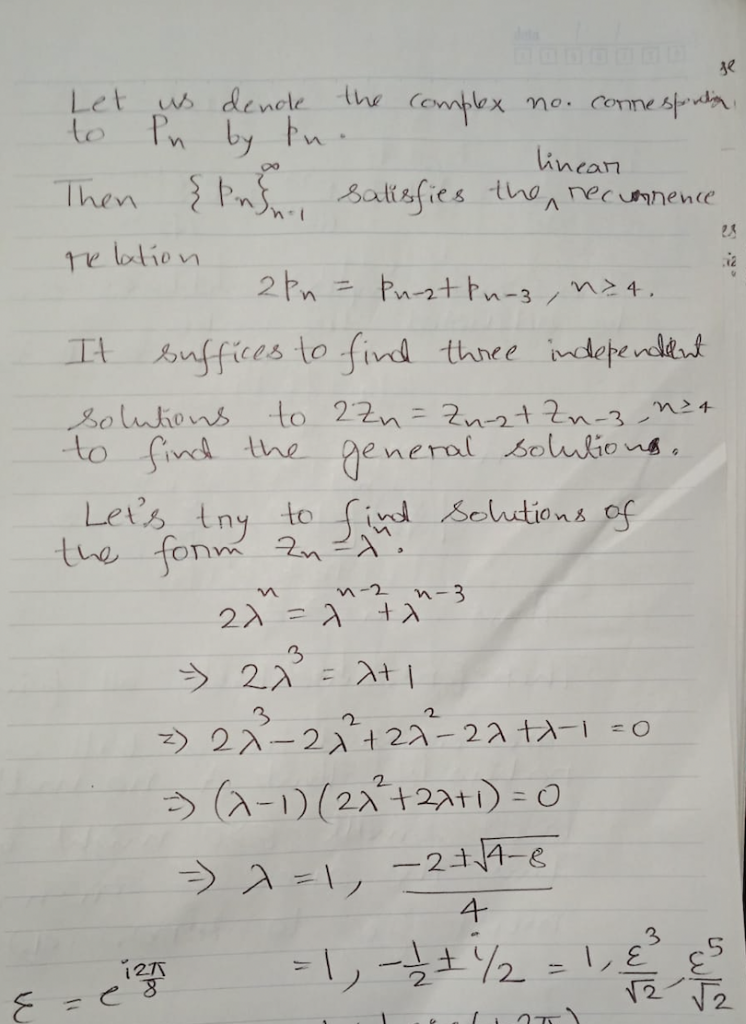 Let us denote the complex no. corresponding
to Pn by pn.
linear
Then {pn}_{n=1}^∞ satisfies the ‸ recurrence
relation
2pn = pn-2 + pn-3 , n ≥ 4.
It suffices to find three independent
solutions to 2Zn = Zn-2 + Zn-3 , n ≥ 4
to find the general solutions.
Let's try to find solutions of
the form Zn = λ^n.
2λ^n = λ^{n-2} + λ^{n-3}
⇒ 2λ^3 = λ + 1
⇒ 2λ^3 - 2λ^2 + 2λ^2 - 2λ + λ - 1 = 0
⇒ (λ-1)(2λ^2 + 2λ + 1) = 0
⇒ λ = 1, (-2 ± √(4-8))/4
= 1, -1/2 ± i/2 = 1, ε^3/√2, ε^5/√2
ε = e^{i2π/8}